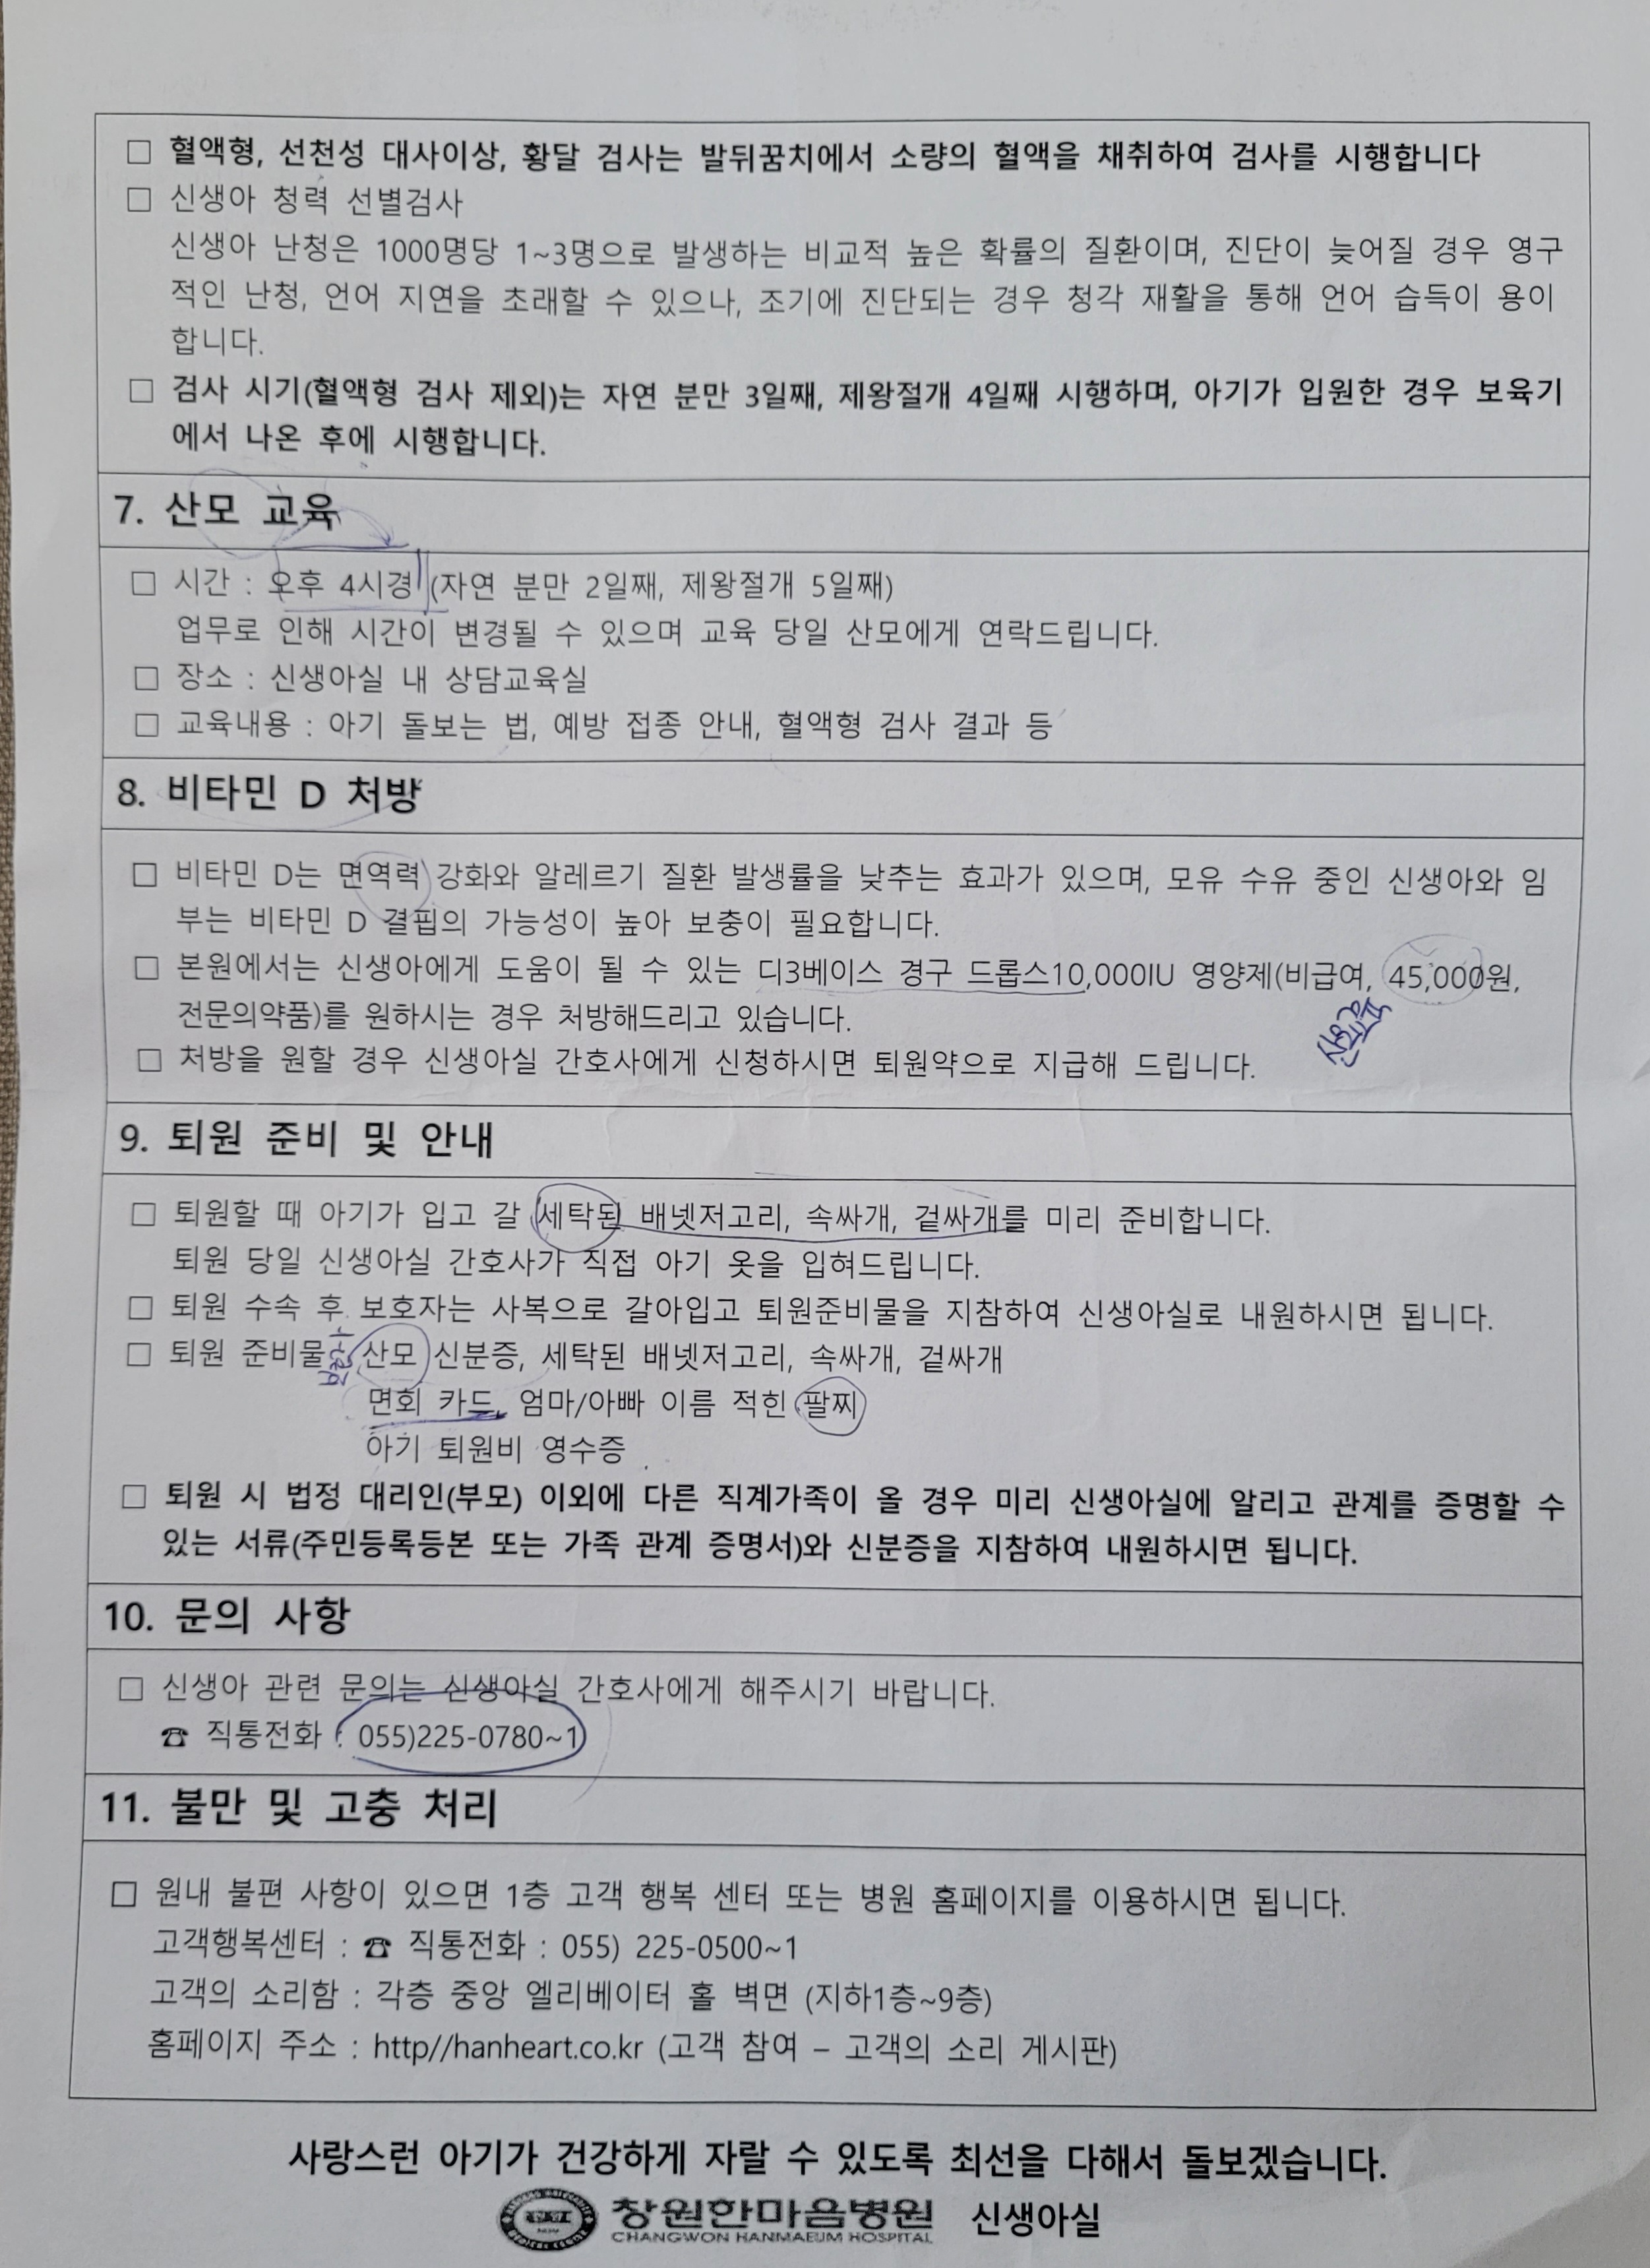 □ 혈액형, 선천성 대사이상, 황달 검사는 발뒤꿈치에서 소량의 혈액을 채취하여 검사를 시행합니다
□ 신생아 청력 선별검사
신생아 난청은 1000명당 1~3명으로 발생하는 비교적 높은 확률의 질환이며, 진단이 늦어질 경우 영구
적인 난청, 언어 지연을 초래할 수 있으나, 조기에 진단되는 경우 청각 재활을 통해 언어 습득이 용이
합니다.
□ 검사 시기(혈액형 검사 제외)는 자연 분만 3일째, 제왕절개 4일째 시행하며, 아기가 입원한 경우 보육기
에서 나온 후에 시행합니다.
7. 산모 교육
□ 시간 : 오후 4시경 (자연 분만 2일째, 제왕절개 5일째)
업무로 인해 시간이 변경될 수 있으며 교육 당일 산모에게 연락드립니다.
□ 장소 : 신생아실 내 상담교육실
□ 교육내용 : 아기 돌보는 법, 예방 접종 안내, 혈액형 검사 결과 등
8. 비타민 D 처방
□ 비타민 D는 면역력 강화와 알레르기 질환 발생률을 낮추는 효과가 있으며, 모유 수유 중인 신생아와 임
부는 비타민 D 결핍의 가능성이 높아 보충이 필요합니다.
□ 본원에서는 신생아에게 도움이 될 수 있는 디3베이스 경구 드롭스10,000IU 영양제(비급여, 45,000원,
전문의약품)를 원하시는 경우 처방해드리고 있습니다.
□ 처방을 원할 경우 신생아실 간호사에게 신청하시면 퇴원약으로 지급해 드립니다.
9. 퇴원 준비 및 안내
□ 퇴원할 때 아기가 입고 갈 세탁된 배넷저고리, 속싸개, 겉싸개를 미리 준비합니다.
퇴원 당일 신생아실 간호사가 직접 아기 옷을 입혀드립니다.
□ 퇴원 수속 후 보호자는 사복으로 갈아입고 퇴원준비물을 지참하여 신생아실로 내원하시면 됩니다.
□ 퇴원 준비물 : 산모 신분증, 세탁된 배넷저고리, 속싸개, 겉싸개
면회 카드, 엄마/아빠 이름 적힌 팔찌
아기 퇴원비 영수증
□ 퇴원 시 법정 대리인(부모) 이외에 다른 직계가족이 올 경우 미리 신생아실에 알리고 관계를 증명할 수
있는 서류(주민등록등본 또는 가족 관계 증명서)와 신분증을 지참하여 내원하시면 됩니다.
10. 문의 사항
□ 신생아 관련 문의는 신생아실 간호사에게 해주시기 바랍니다.
☎ 직통전화 : 055)225-0780~1
11. 불만 및 고충 처리
□ 원내 불편 사항이 있으면 1층 고객 행복 센터 또는 병원 홈페이지를 이용하시면 됩니다.
고객행복센터 : ☎ 직통전화 : 055) 225-0500~1
고객의 소리함 : 각층 중앙 엘리베이터 홀 벽면 (지하1층~9층)
홈페이지 주소 : http//hanheart.co.kr (고객 참여 – 고객의 소리 게시판)
사랑스런 아기가 건강하게 자랄 수 있도록 최선을 다해서 돌보겠습니다.
창원한마음병원 신생아실
CHANGWON HANMAEUM HOSPITAL